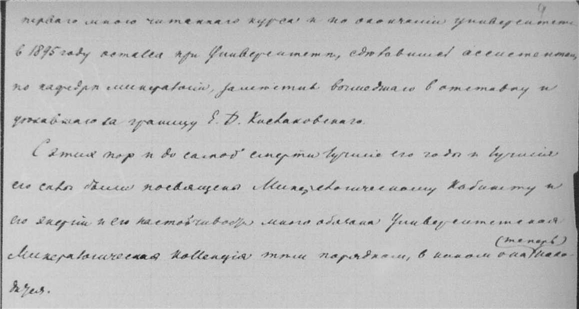 4
перваго много читаннаго курса и по окончаніи университета
в 1895 году остался при Университетѣ, сдѣлавшись ассистентом
по кафедрѣ минералогіи, замѣстив вышедшаго в отставку и
уѣхавшаго за границу Е. Д. Кислаковскаго.
С этих пор и до самой смерти лучшіе его годы и лучшія
его силы были посвящены Минералогическому Кабинету и
его энергіи и его настойчивости много обязана Университетская
(теперь)
Минералогическая Коллекція тѣм порядком, в каком она нахо-
дится.